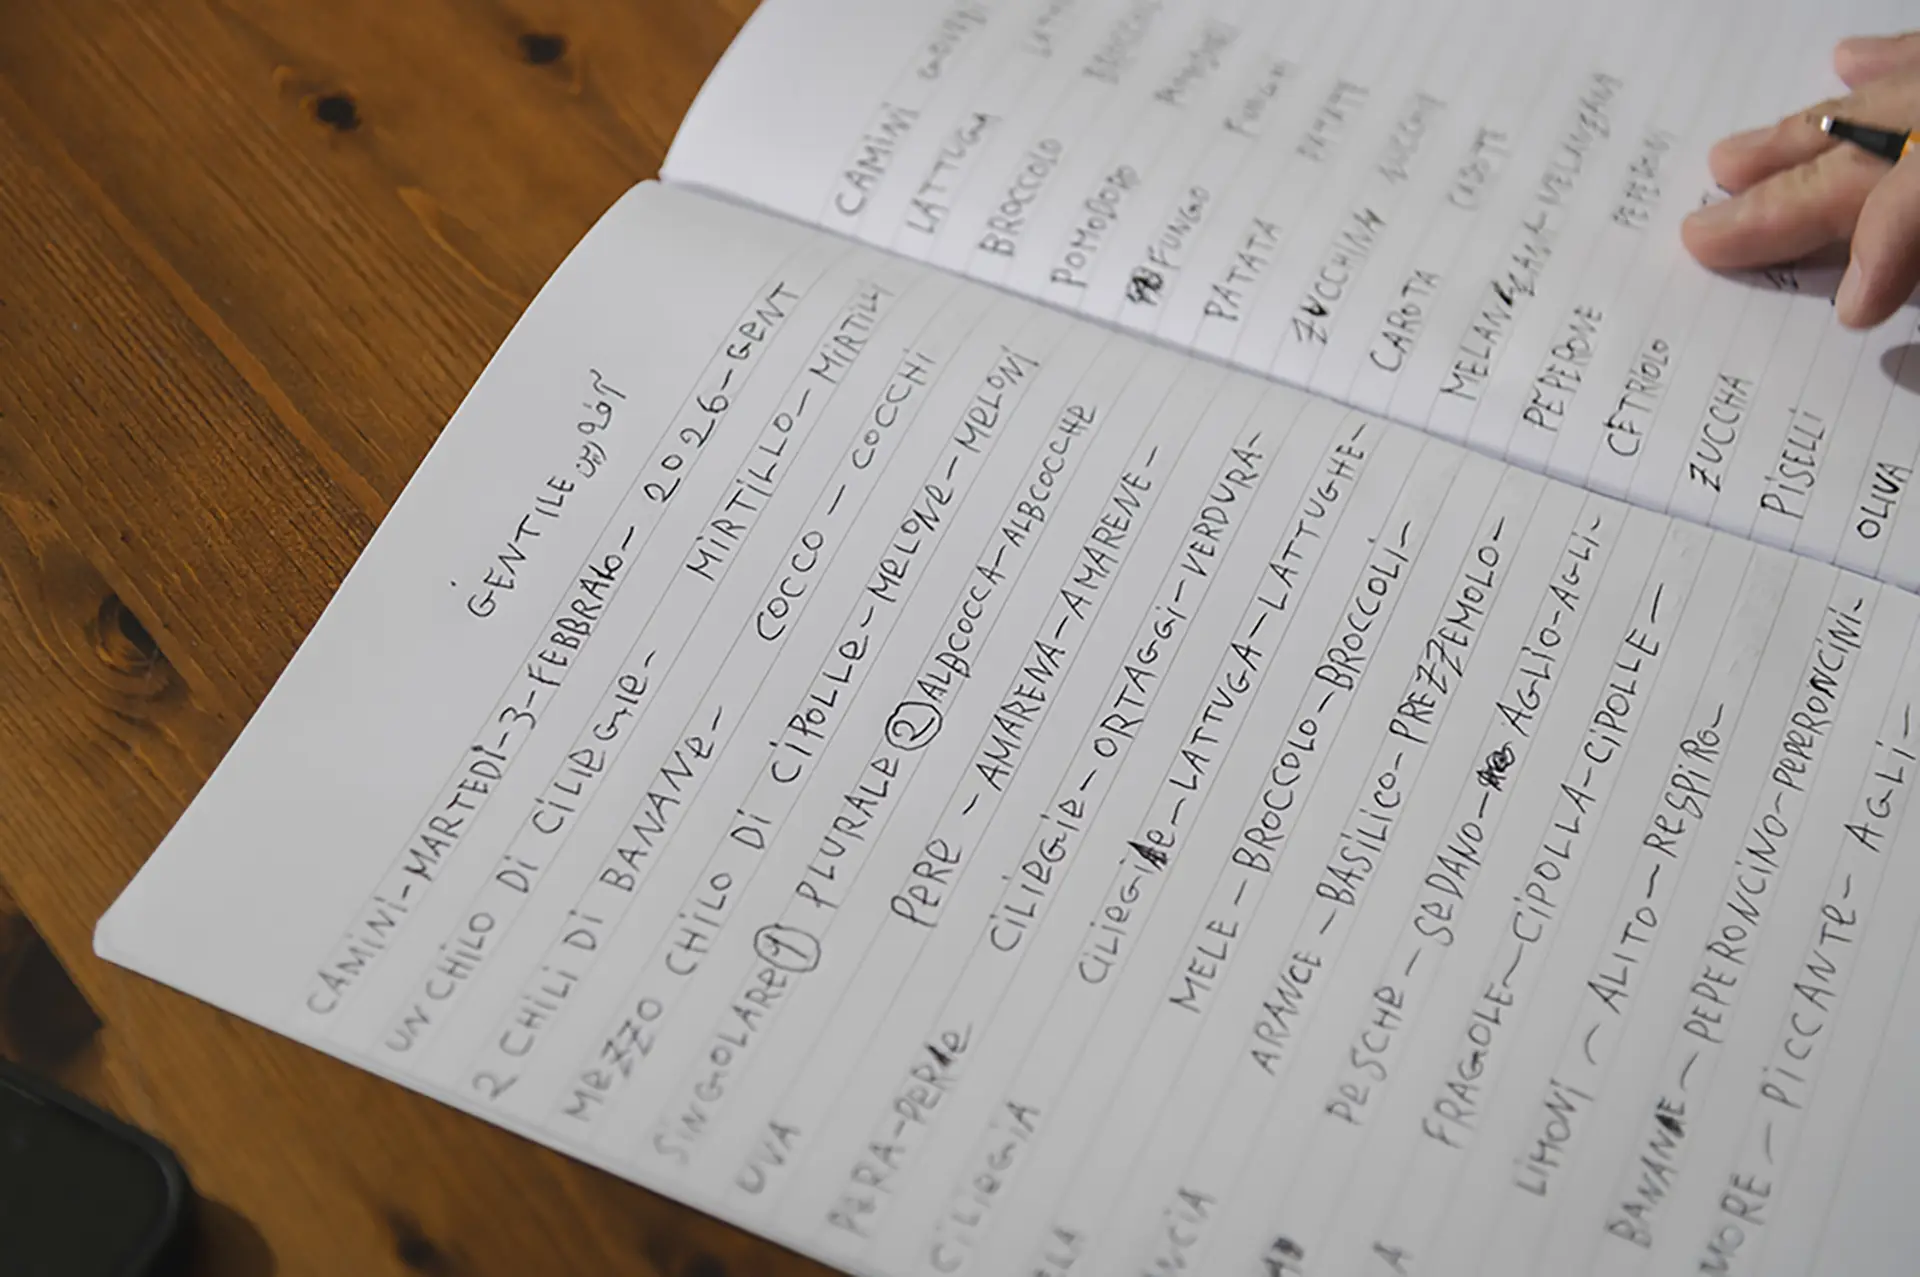 GENTILE
CAMINI-MARTEDI-3-FEBBRAIO-2026-GENT
UN CHILO DI CILIEGIE- MIRTILLO-MIRTILLI
2 CHILI DI BANANE- COCCO-COCCHI
MEZZO CHILO DI CIPOLLE-MELONE-MELONI
SINGOLARE 1 PLURALE 2 ALBCOCCA-ALBCOCCHE
UVA PERE-AMARENA-AMARENE-
PERA-PERE CILIEGIE-ORTAGGI-VERDURA-
CILIEGIA CILIEGIE-LATTUGA-LATTUGHE-
MELE-BROCCOLO-BROCCOLI-
ARANCE-BASILICO-PREZZEMOLO-
PESCHE-SEDANO-AGLIO-AGLI-
FRAGOLE-CIPOLLA-CIPOLLE-
LIMONI-ALITO-RESPIRO-
BANANE-PEPERONCINO-PEPERONCINI-
MORE-PICCANTE-AGLI-
CAMINI
LATTUGA
BROCCOLO
POMODORO
FUNGO FUNGHI
PATATA PATATE
ZUCCHINA
CAROTA CAROTE
MELANZANA-MELANZANA
PEPERONE PEPERONI
CETRIOLO
ZUCCHA
PISELLI
OLIVA